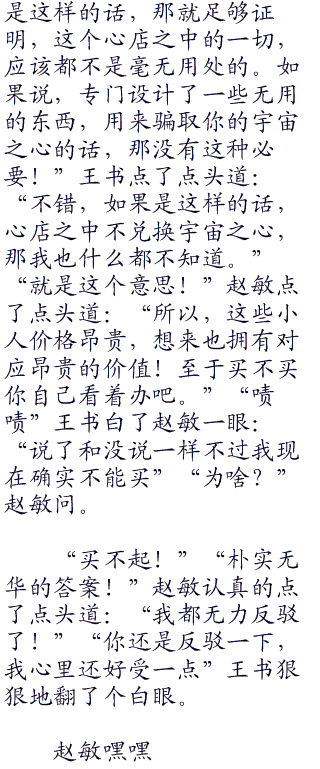 是这样的话，那就足够证
明，这个心店之中的一切，
应该都不是毫无用处的。如
果说，专门设计了一些无用
的东西，用来骗取你的宇宙
之心的话，那没有这种必
要！”王书点了点头道：
“不错，如果是这样的话，
心店之中不兑换宇宙之心，
那我也什么都不知道。”
“就是这个意思！”赵敏点
了点头道：“所以，这些小
人价格昂贵，想来也拥有对
应昂贵的价值！至于买不买
你自己看着办吧。”“啧
啧”王书白了赵敏一眼：
“说了和没说一样不过我现
在确实不能买”“为啥？”
赵敏问。
“买不起！”“朴实无
华的答案！”赵敏认真的点
了点头道：“我都无力反驳
了！”“你还是反驳一下，
我心里还好受一点”王书狠
狠地翻了个白眼。
赵敏嘿嘿